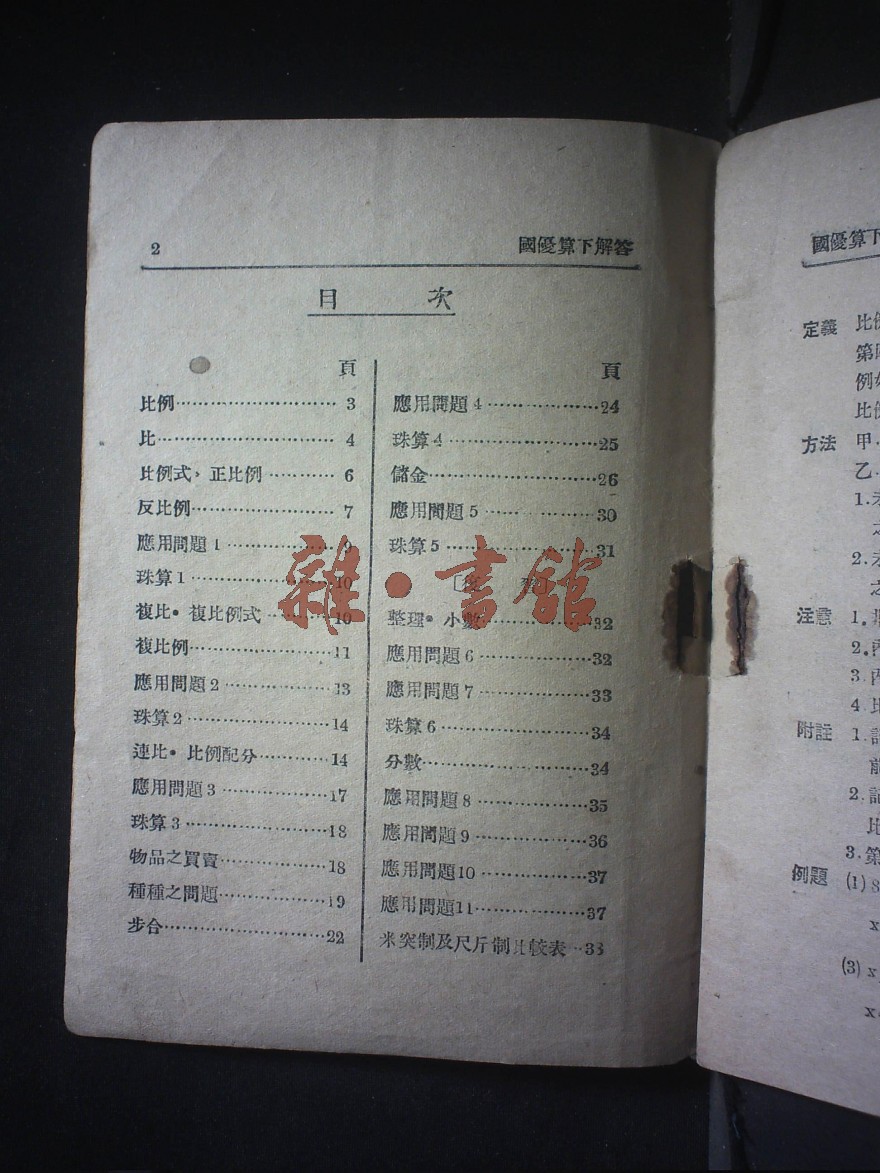 2
國優算下解答
目 次
頁
比例 3
比 4
比例式，正比例 6
反比例 7
應用問題1 9
珠算1 10
複比·複比例式 10
複比例 11
應用問題2 13
珠算2 14
連比·比例配分 14
應用問題3 17
珠算3 18
物品之買賣 18
種種之問題 19
步合 22
頁
應用問題4 24
珠算4 25
儲金 26
應用問題5 30
珠算5 31
整理·小數 32
應用問題6 32
應用問題7 33
珠算6 34
分數 34
應用問題8 35
應用問題9 36
應用問題10 37
應用問題11 37
米突制及尺斤制比較表 38
雜·書館
國優算下
定義 比例
第
例
比
方法 甲
乙
1.
之
2.
之
注意 1.
2.
3.
4. 比
附註 1.
前
2. 記
比
3. 第
例題 (1) 8
x
(3) x
x